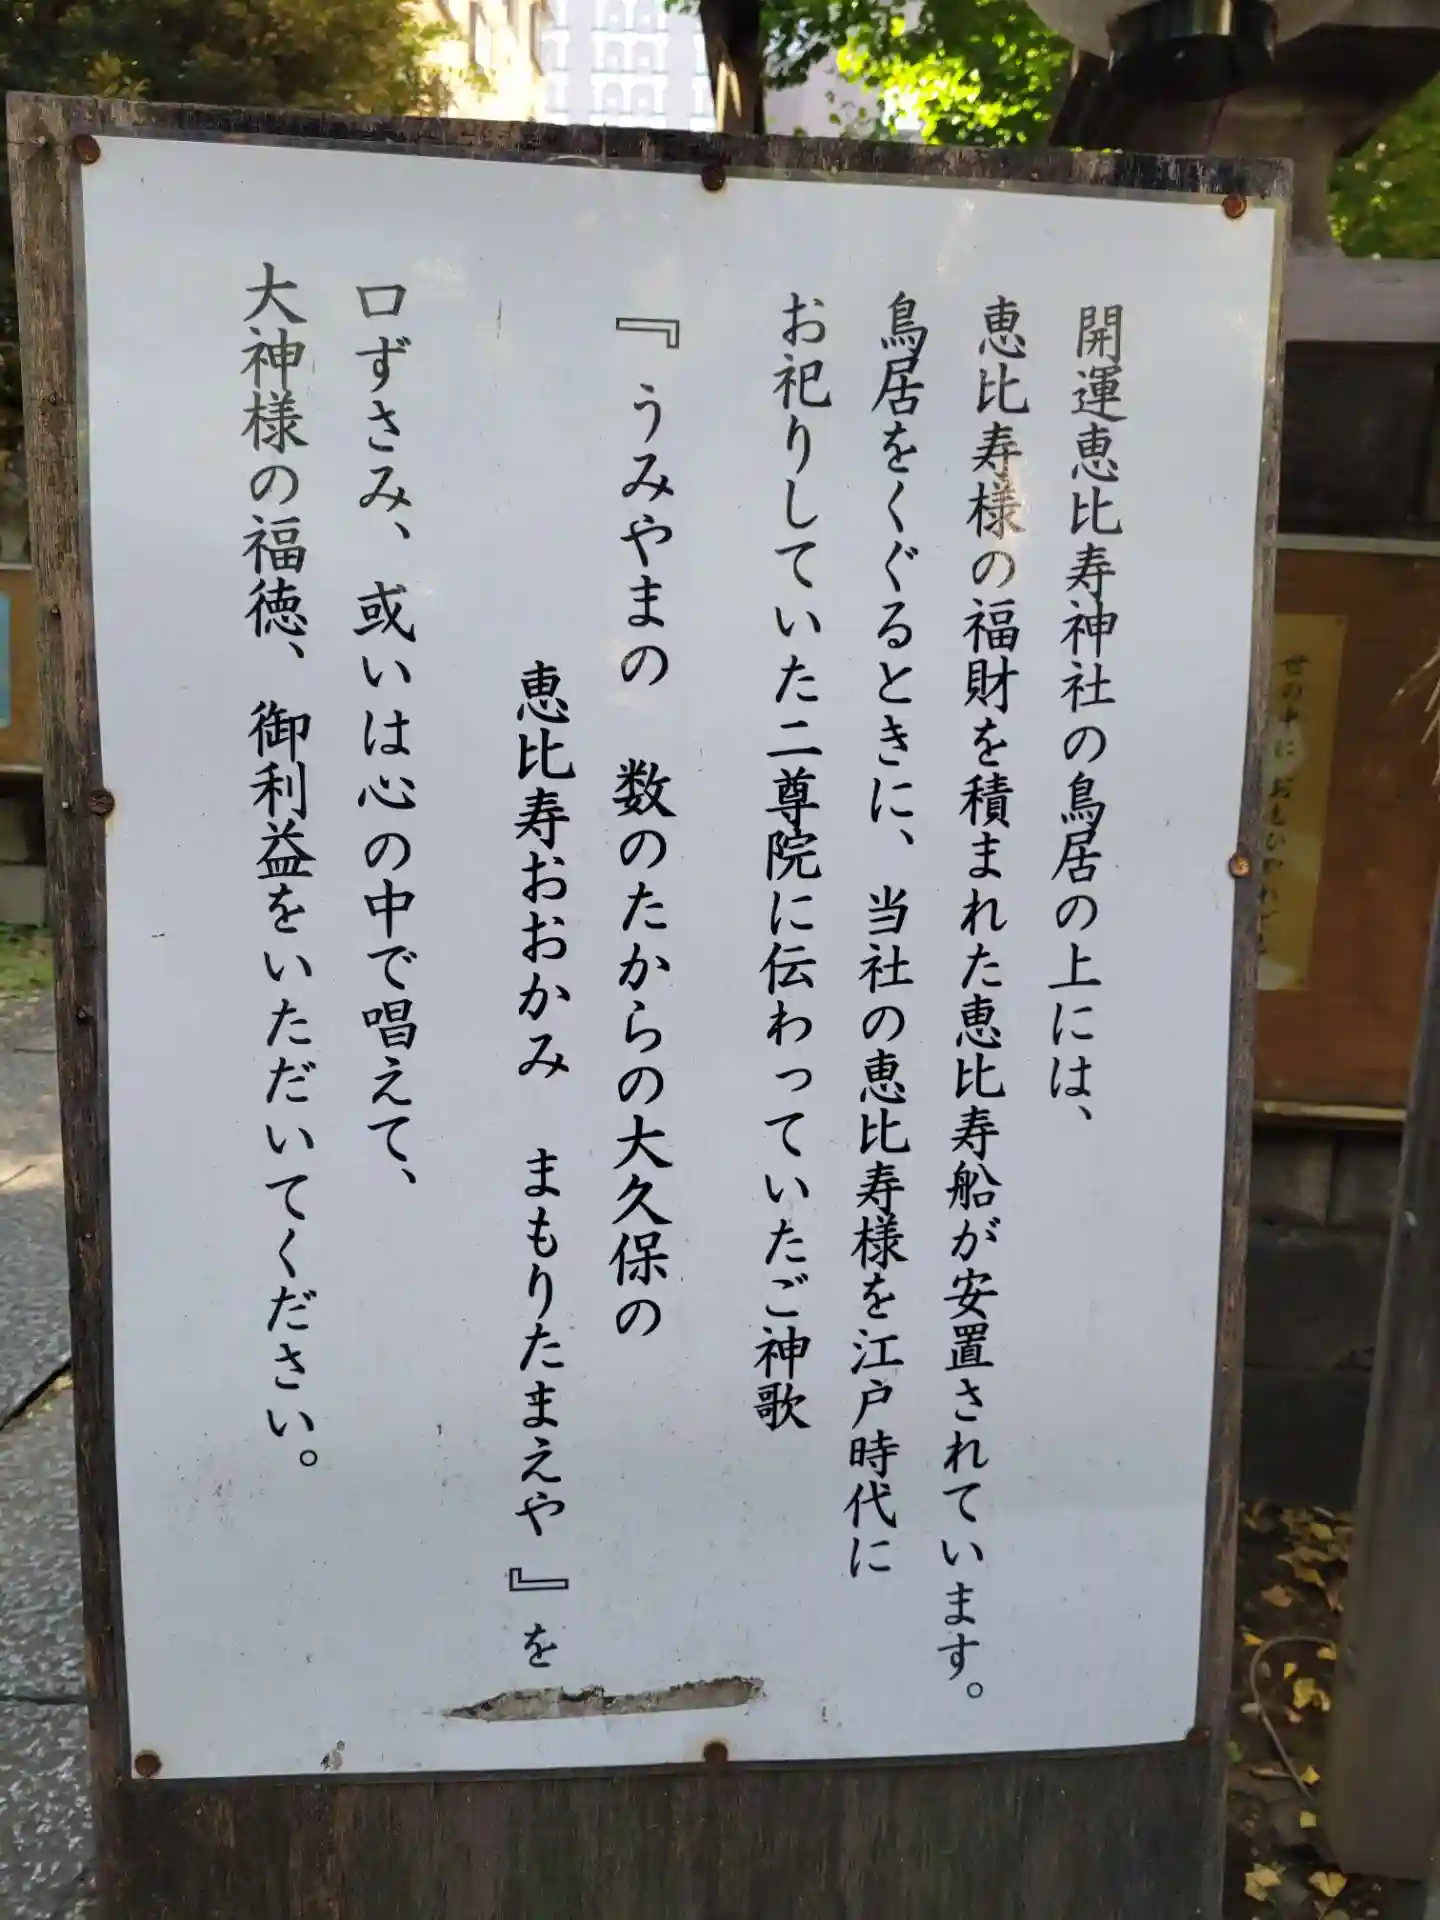 開運恵比寿神社の鳥居の上には、
恵比寿様の福財を積まれた恵比寿船が安置されています。
鳥居をくぐるときに、当社の恵比寿様を江戸時代に
お祀りしていた二尊院に伝わっていたご神歌
『うみやまの　数のたからの大久保の
恵比寿おおかみ　まもりたまえや』を
口ずさみ、或いは心の中で唱えて、
大神様の福徳、御利益をいただいてください。
世の中に おもひやれども